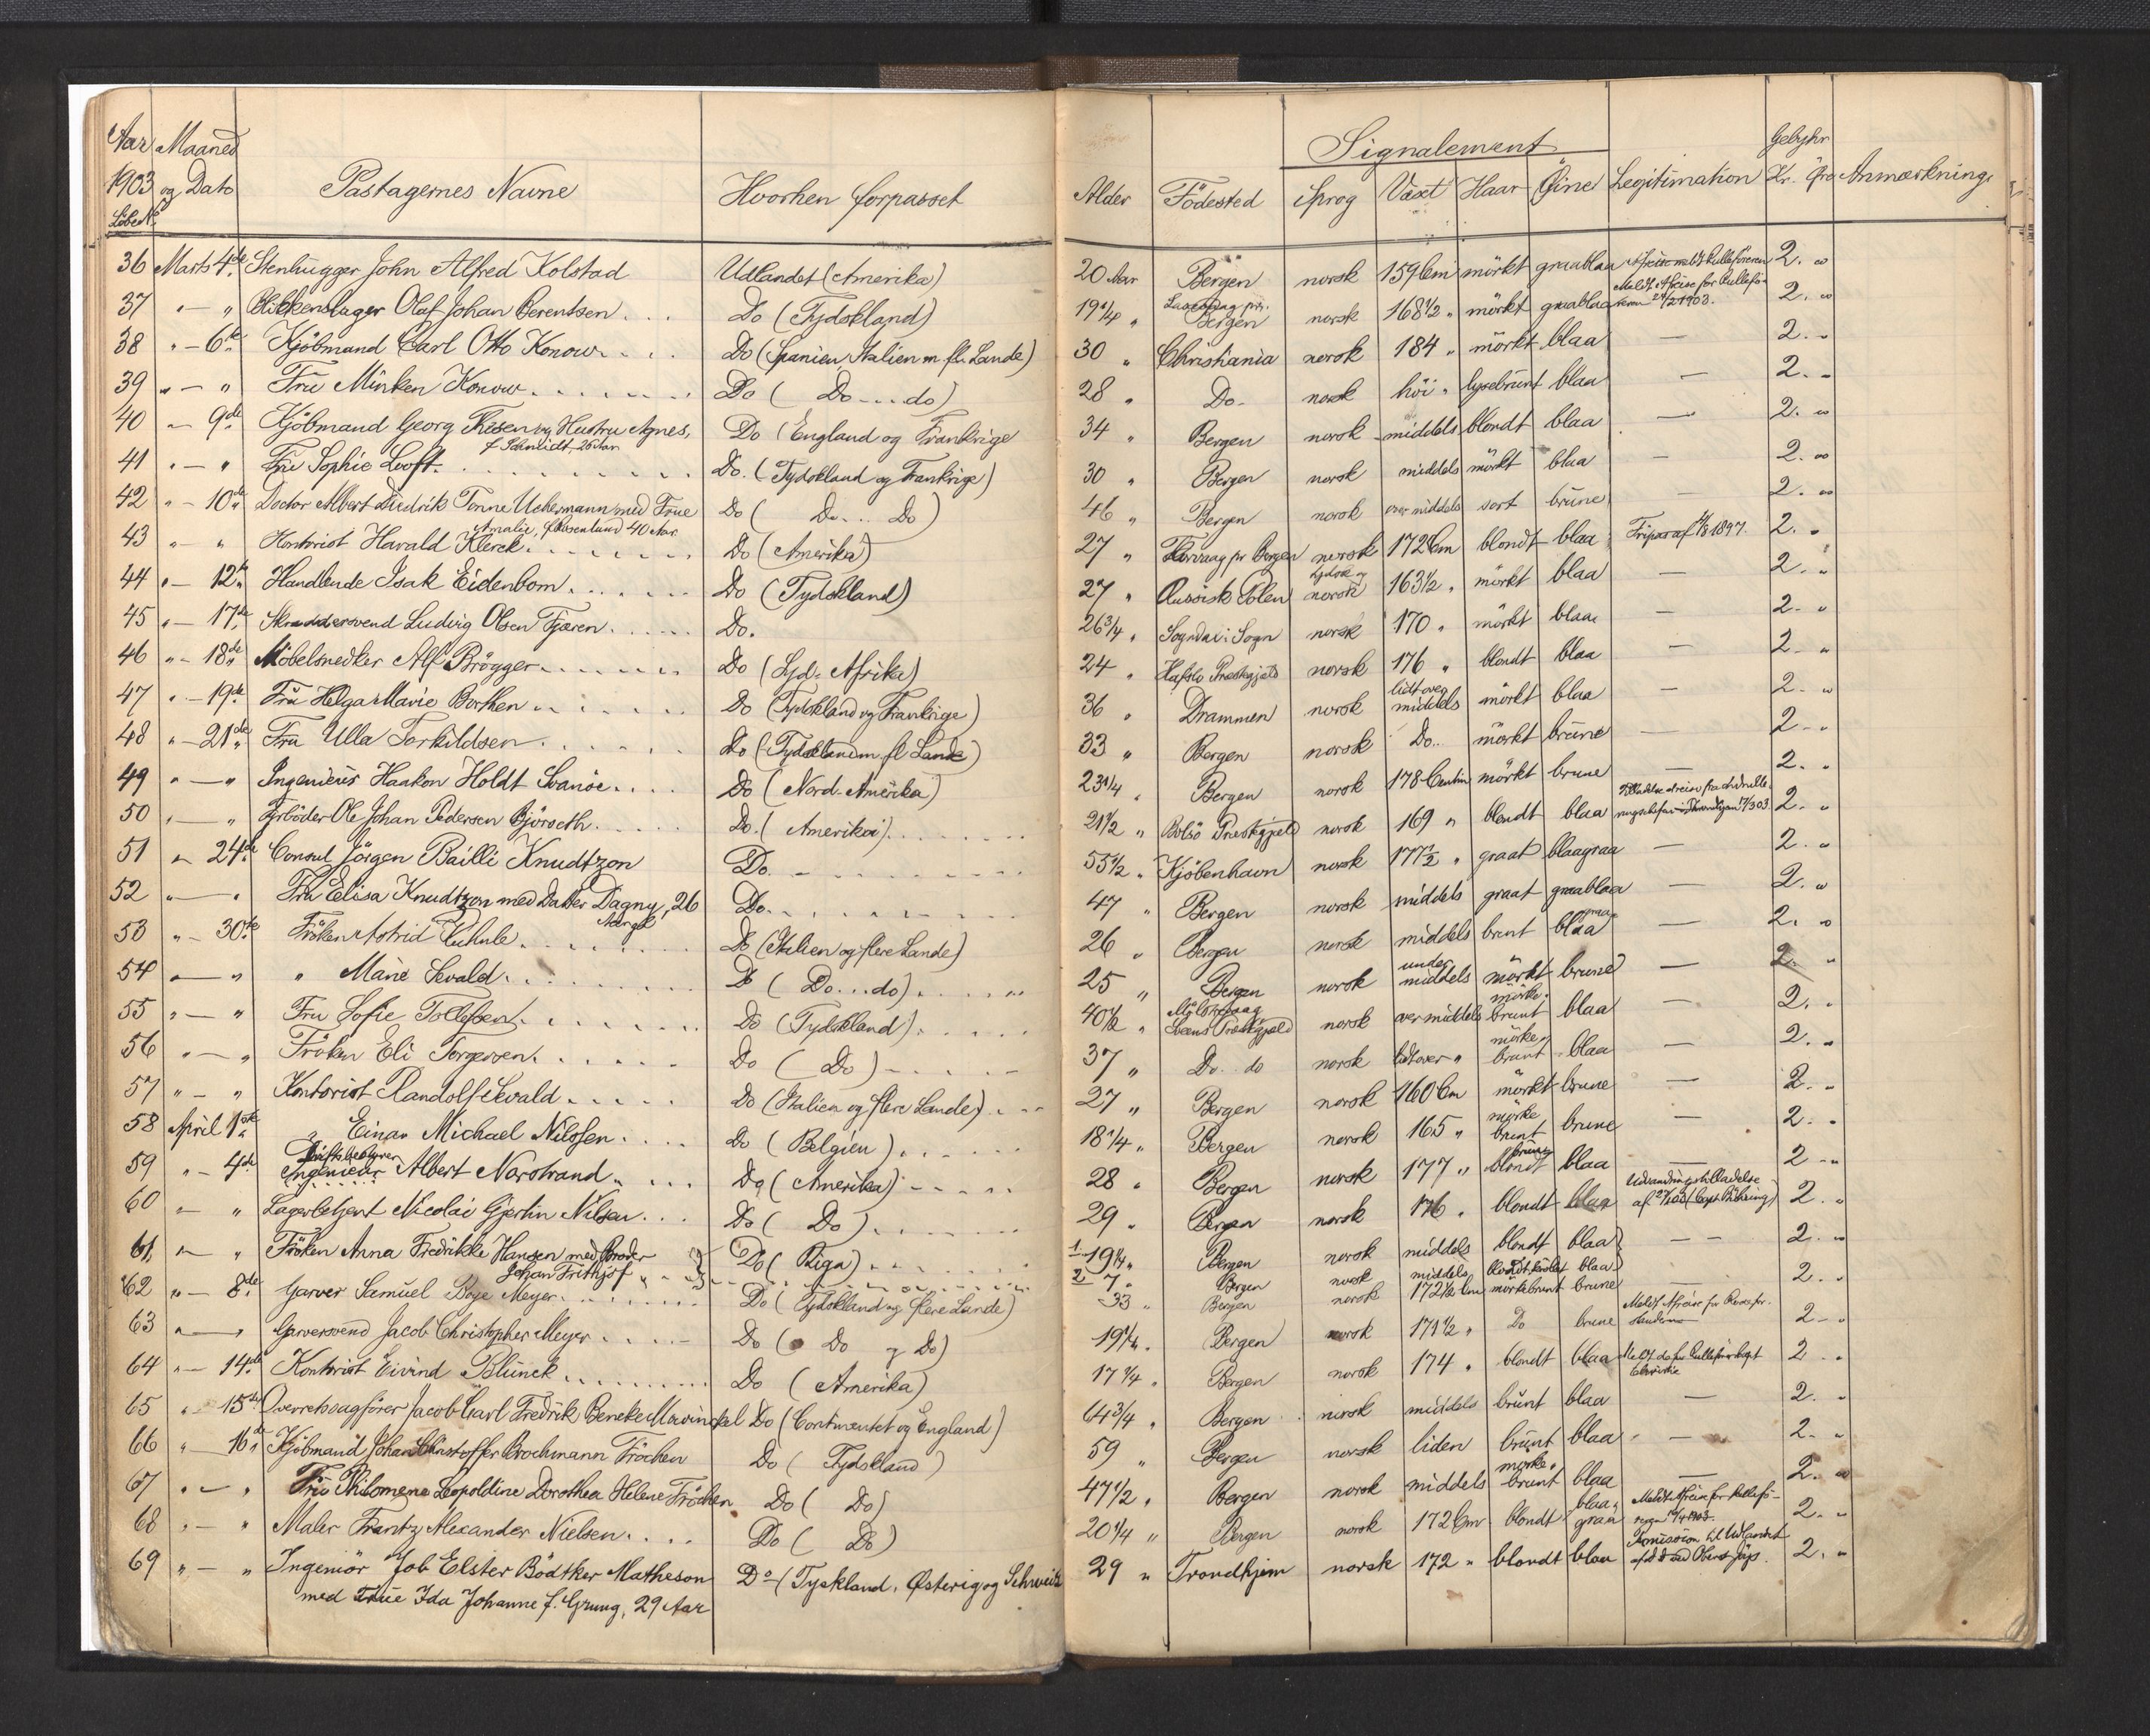 Aar Maaned Signalement Gebyhr
1903 og Dato Pastagernes Navne Hvorhen forpasset Alder Födested Sprog Växt Haar Öine Legitimation Kr. Öre Anmærkning
LöbeNo
36 Marts 4de Stenhugger John Alfred Kolstad Udlandet (Amerika) 20 Aar Bergen norsk 159 Cm mörkt graablaa 2. "
37 " — " Blikkenslager Olaf Johan Berentsen Do (Tydskland) 19 1/4 " Laxevaag pr. Bergen norsk 168 1/2 " mörkt graablaa Meldt Afreise for Rulleföreren 24/2 1903. 2. "
38 " — 6te Kjöbmand Carl Otto Konow Do (Spanien, Italien m. fl. Lande) 30 " Christiania norsk 184 " mörkt blaa — 2. "
39 " — " Fru Minken Konow Do ( Do....do) 28 " Do. norsk höi " lysebrunt blaa — 2. "
40 " 9de Kjöbmand Georg Friesen og Hustru Agnes, Do (England og Frankrige 34 " Bergen norsk middels blondt blaa — 2. "
f. Schmidt, 26 Aar
41 " — " Fru Sophie Looft Do. (Tydskland og Frankrige) 30 " Bergen norsk middels mörkt blaa — 2. "
42 " — 10de Doctor Albert Diedrik Tonne Uchermann med Frue Do ( Do... Do) 46 " Bergen norsk over middels sort brune — 2. "
Amalie, f. Rosenlund 40 Aar
43 " — " Kontorist Harald Klerck Do (Amerika) 27 " pr Bergen norsk 172 Cm blondt blaa Fripas af 1897. 2. "
44 " — 12te Handlende Isak Eidenbom Do (Tydskland) 27 " Russisk Polen tydsk og norsk 163 1/2 " mörkt blaa — 2. "
45 " — 17de Skræddersvend Ludvig Olsen Fjæren Do. 26 3/4 " Sogndal i Sogn norsk 170 " mörkt blaa — 2. "
46 " — 18de Möbelsnedker Alf Brögger Do (Syd-Afrika) 24 " Hafslo Præstegjeld norsk 176 " blondt blaa — 2. "
47 " — 19de Fru Helga Marie Borthen Do (Tydskland og Frankrige) 36 " Drammen norsk lidt over middels mörkt blaa — 2. "
48 " — 21de Fru Ulla Torkildsen Do (Tydskland m. fl. Lande) 33 " Bergen norsk Do. mörkt brune — 2. "
49 " — " Ingenieur Haakon Holdt Svanöe Do (Nord-Amerika) 23 1/4 " Bergen norsk 178 Centim mörkt brune — 2. "
50 " — " Fyrböder Ole Johan Pedersen Björseth Do. (Amerika) 21 1/2 " Bolsö Præstegjeld norsk 169 " blondt blaa 2. "
51 " 24de Consul Jörgen Bailli Knudtzon Do. 55 1/2 " Kjöbenhavn norsk 177 1/2 " graat blaagraa — 2. "
52 " — " Fru Elisa Knudtzon med Datter Dagny, 26 Do. 47 " Bergen norsk middels graat graablaa — 2. "
53 " — 30te Fröken Astrid Do (Italien og flere Lande) 26 " Bergen norsk middels brunt blaa — 2. "
54 " — " " Marie Sevald Do ( Do...do) 25 " Bergen norsk under middels mörkt brune — 2. "
55 " — " Fru Sofie Tollefsen Do (Tydskland) 40 1/2 " Præstegjeld norsk over middels mörkebrunt blaa — 2. "
56 " — " Fröken Eli Torgersen Do ( Do) 37 " Do. do norsk lidt over " mörkebrunt blaa — 2. "
57 " — " Kontorist Randolf Sevald Do (Italien og flere Lande) 27 " Bergen norsk 160 Cm mörkt brune — 2. "
58 April 1ste " Einar Michael Nilssen Do (Belgien) 18 1/4 " Bergen norsk 165 " mörke brunt brune — 2. "
59 " — 4de Driftsbestyrer Ingenieur Albert Nordstrand Do (Amerika) 28 " Bergen norsk 177 " blondt blaa — 2 "
60 " — " Lagerbetjent Nicolai Gjertin Nilsen Do ( Do) 29 " Bergen norsk 176 " blondt blaa Udvandringstilladelse 2. "
61 " — " Fröken Anna Fredrikke Hansen med Broder Do (Riga) 1. 19 1/4 " Bergen norsk middels blondt blaa — 2. "
Johan Frithjof 2. 7 " Bergen norsk middels blondt blaa
62 " — 8de Garver Samuel Boye Meyer Do (Tydskland og flere Lande) 33 " Bergen norsk 172 1/2 Cm mörkebrunt brune — 2. "
63 " — " Garversvend Jacob Christopher Meyer Do ( Do og Do) 19 1/4 " Bergen norsk 171 1/2 " Do brune Meldt Afreise for 2 "
64 " — 14de Kontorist Eivind Blunck Do (Amerika) 17 1/4 " Bergen norsk 174 " blondt blaa 2. "
65 " — 15de Overretssagfører Jacob Carl Fredrik Beneke Mowinckel Do (Continentet og England) 64 3/4 " Bergen norsk middels brunt blaa — 2. "
66 " — 16de Kjöbmand Johan Christoffer Brochmann Fröchen Do ( Tydskland ) 59 " Bergen norsk liden brunt blaa — 2. "
67 " — " Fru Philomene Leopoldine Dorothea Helene Fröchen Do ( Do) 47 1/2 " Bergen norsk middels mörkebrunt blaa — 2. "
68 " — " Maler Frantz Alexander Nielsen Do ( Do) 20 1/4 " Bergen norsk 172 Cm blondt blaagraa Meldt Afreise for Rulleföreren 2. "
69 " — " Ingeniör Job Elster Bödtker Matheson Do (Tyskland, Østerig og Schweitz 29 " Trondhjem norsk 172 " blondt blaa 2. "
med Frue Ida Johanne f. Grung, 29 Aar